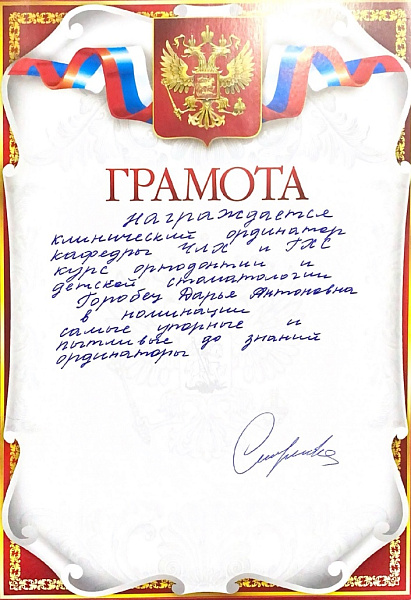 ГРАМОТА
награждается
клинический ординатор
кафедры ЧЛХ и ГХС
курс ортодонтии и
детской стоматологии
Горобец Дарья Антоновна
в номинации
самые упорные и
пытливые до знаний
ординаторы